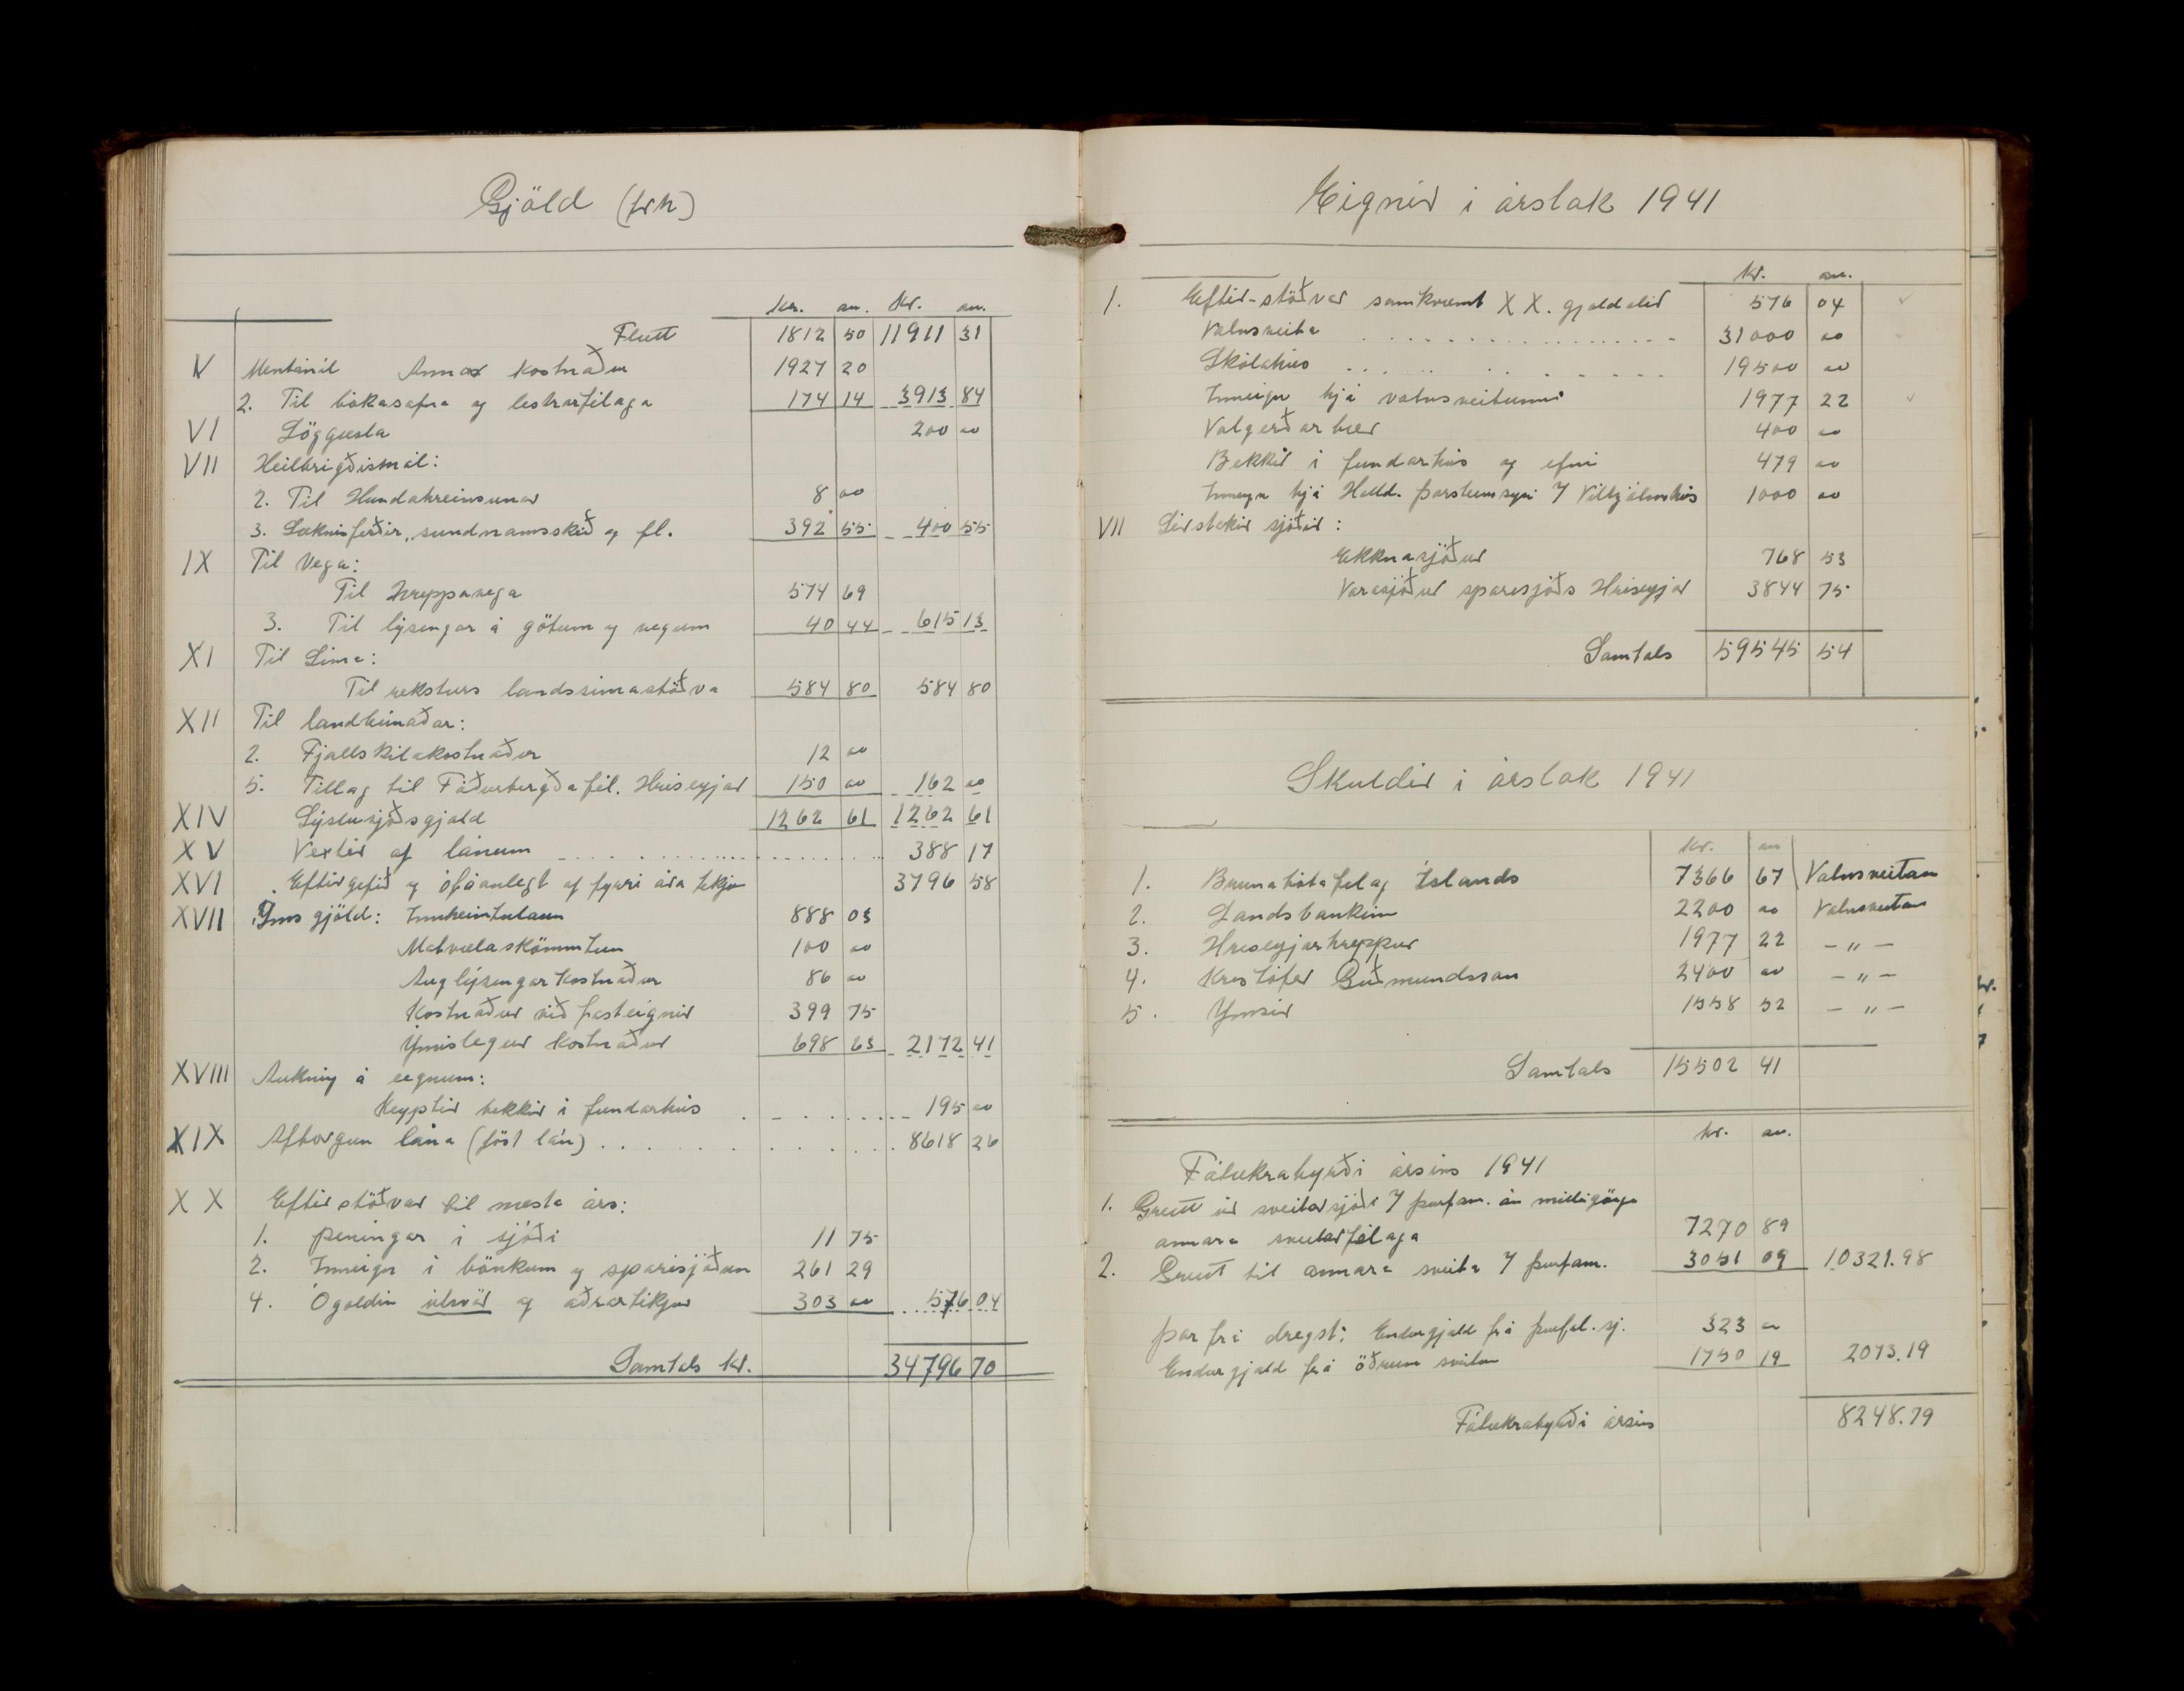 Gjöld (frh)
kr. au. kr. au.
Flutt 1812 50 11911 31
V Mentamál Annar kostnaður 1927 20
2. Til bókasafna og lestrarfélaga 174 14 3913 84
VI Löggæsla 200 00
VII Heilbrigðismál:
2. Til Hundahreinsunar 8 00
3. Læknisferðir, sundnamsskeið og fl. 392 55 400 55
IX Til Vega:
Til Hreppavega 574 69
3. Til lýsingar á götum og vegum 40 44 615 13
XI Til Síma:
Til reksturs landssímastöðva 584 80 584 80
XII Til landbúnaðar:
2. Fjallskilakostnaður 12 00
5. Tillag til Fóðurbirgðafél. Hríseyjar 150 00 162 00
XIV Sýslusjóðsgjald 1262 61 1262 61
XV Vextir af lánum 388 17
XVI Eftirgefið og ófáanlegt af fyrri ára tekjum 3796 58
XVII Yms gjöld: Innheimtulaun 888 03
Matvælaskömmtun 100 00
Auglýsingarkostnaður 86 00
Kostnaður við fasteignir 399 75
Ýmislegur kostnaður 698 63 2172 41
XVIII Aukning á eignum:
Keyptir bekkir í fundarhús 195 00
XIX Afborgun lána (föst lán) 8618 26
XX Eftirstöðvar til næsta árs:
1. peningar í sjóði 11 75
2. Inneign í bönkum og sparisjóðum 261 29
4. Ógoldin útsvör og aðrartekjur 303 00 576 04
Samtals kr. 34796 70
Eignir í árslok 1941
kr. au.
1. Eftir-stöðvar samkvæmt XX. gjaldalið 576 04 ✓
Vatnsveita 31000 00
Skólahús 19500 00
Inneign hjá vatnsveitunni 1977 22 ✓
Valgerðarbær 400 00
Bekkir í fundarhús og efni 479 00
Inneign hjá Halld. Þorsteinssyni Vilhjálmshús 1000 00
VII Sérstakir sjóðir:
Ekknasjóður 768 53
Varasjóður sparisjóðs Hríseyjar 3844 75
Samtals 59545 54
Skuldir í árslok 1941
kr. au
1. Brunabótafélag Íslands 7366 67 Vatnsveitan
2. Landsbankinn 2200 00 Vatnsveitan
3. Hríseyjarhreppur 1977 22 – „ –
4. Kristófer Guðmundsson 2400 00 – „ –
5. Ýmsir 1558 52 – „ –
Samtals 15502 41
kr. au.
Fátækrabyrði ársins 1941
1. Greitt úr sveitarsjóði þurfam. án milligöngu
annara sveitarfélaga 7270 89
2. Greitt til annara sveita þurfam. 3051 09 10321.98
þar frá dregst: Endurgjald frá þurfal. sj. 323 00
Endurgjald frá öðrum sveitum 1750 19 2073.19
Fátækrabyrði ársins 8248.79